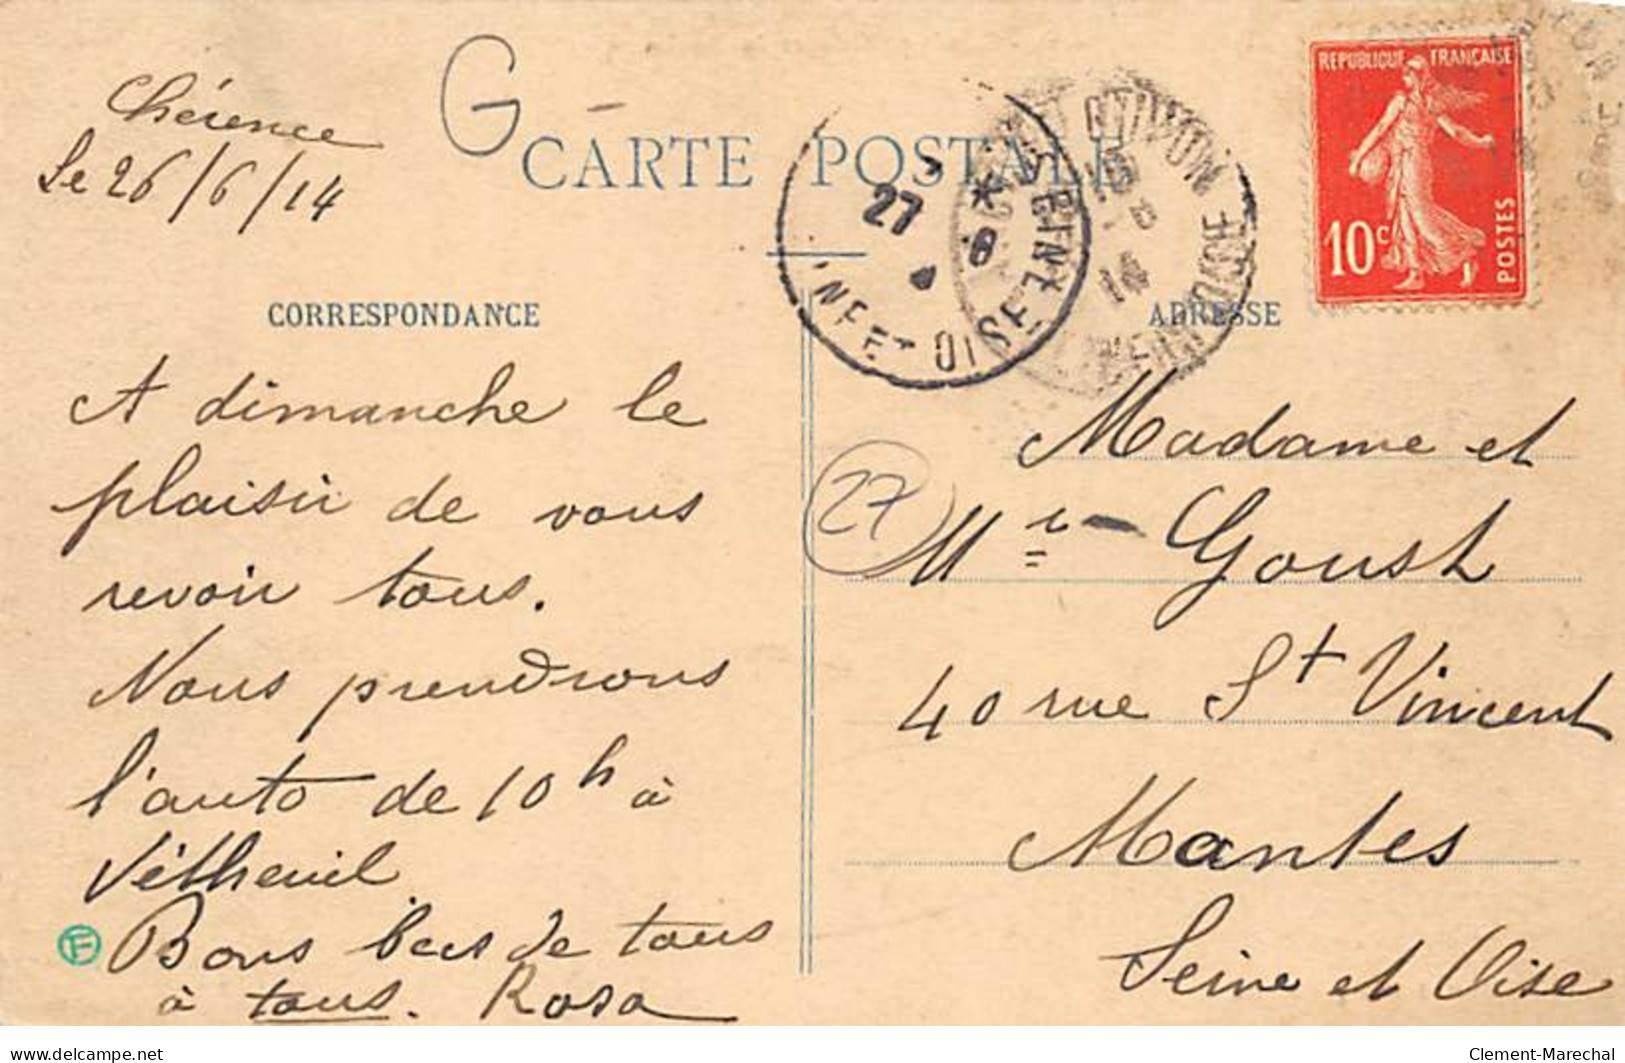 Chérence
Le 26/6/14
G
CARTE POSTALE
CORRESPONDANCE
A dimanche le
plaisir de vous
revoir tous.
Nous prendrons
l'auto de 10h à
Vétheuil
Bons becs de tous
à tous. Rosa
F
27
6
OISE
14
REPUBLIQUE FRANÇAISE
10c
POSTES
ADRESSE
Madame et
Mr Goust
27
40 rue St Vincent
Mantes
Seine et Oise
delcampe.net
Clement-Marechal